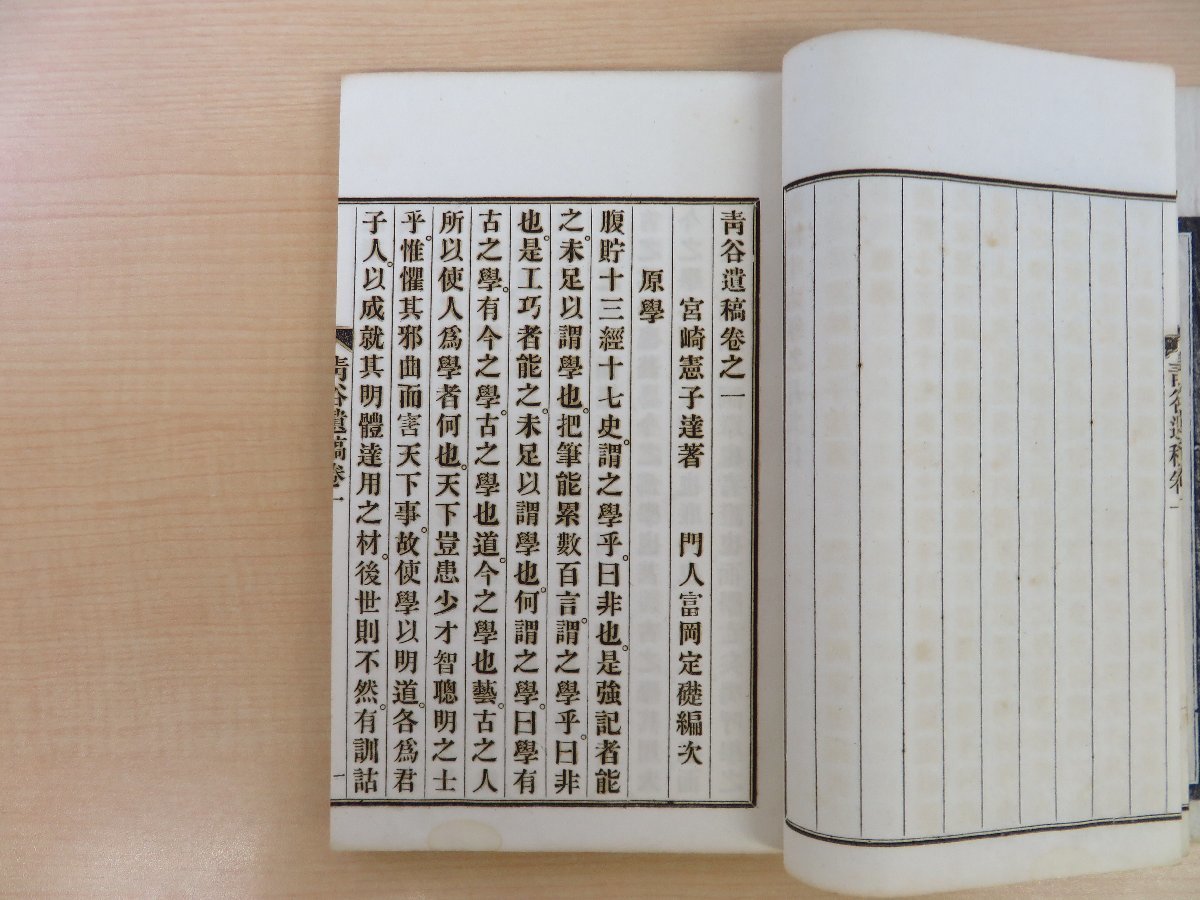 青谷遺稿卷之一
宮崎憲子達著　門人富岡定礎編次
原學
腹貯十三經十七史。謂之學乎。曰非也。是強記者能
之。未足以謂學也。把筆能累數百言。謂之學乎。曰非
也。是工巧者能之。未足以謂學也。何謂之學。曰學有
古之學。有今之學。古之學也道。今之學也藝。古之人
所以使人爲學者何也。天下豈患少才智聰明之士
乎。惟懼其邪曲而害天下事。故使學以明道。各爲君
子人。以成就其明體達用之材。後世則不然。有訓詁
青谷遺稿卷一
一